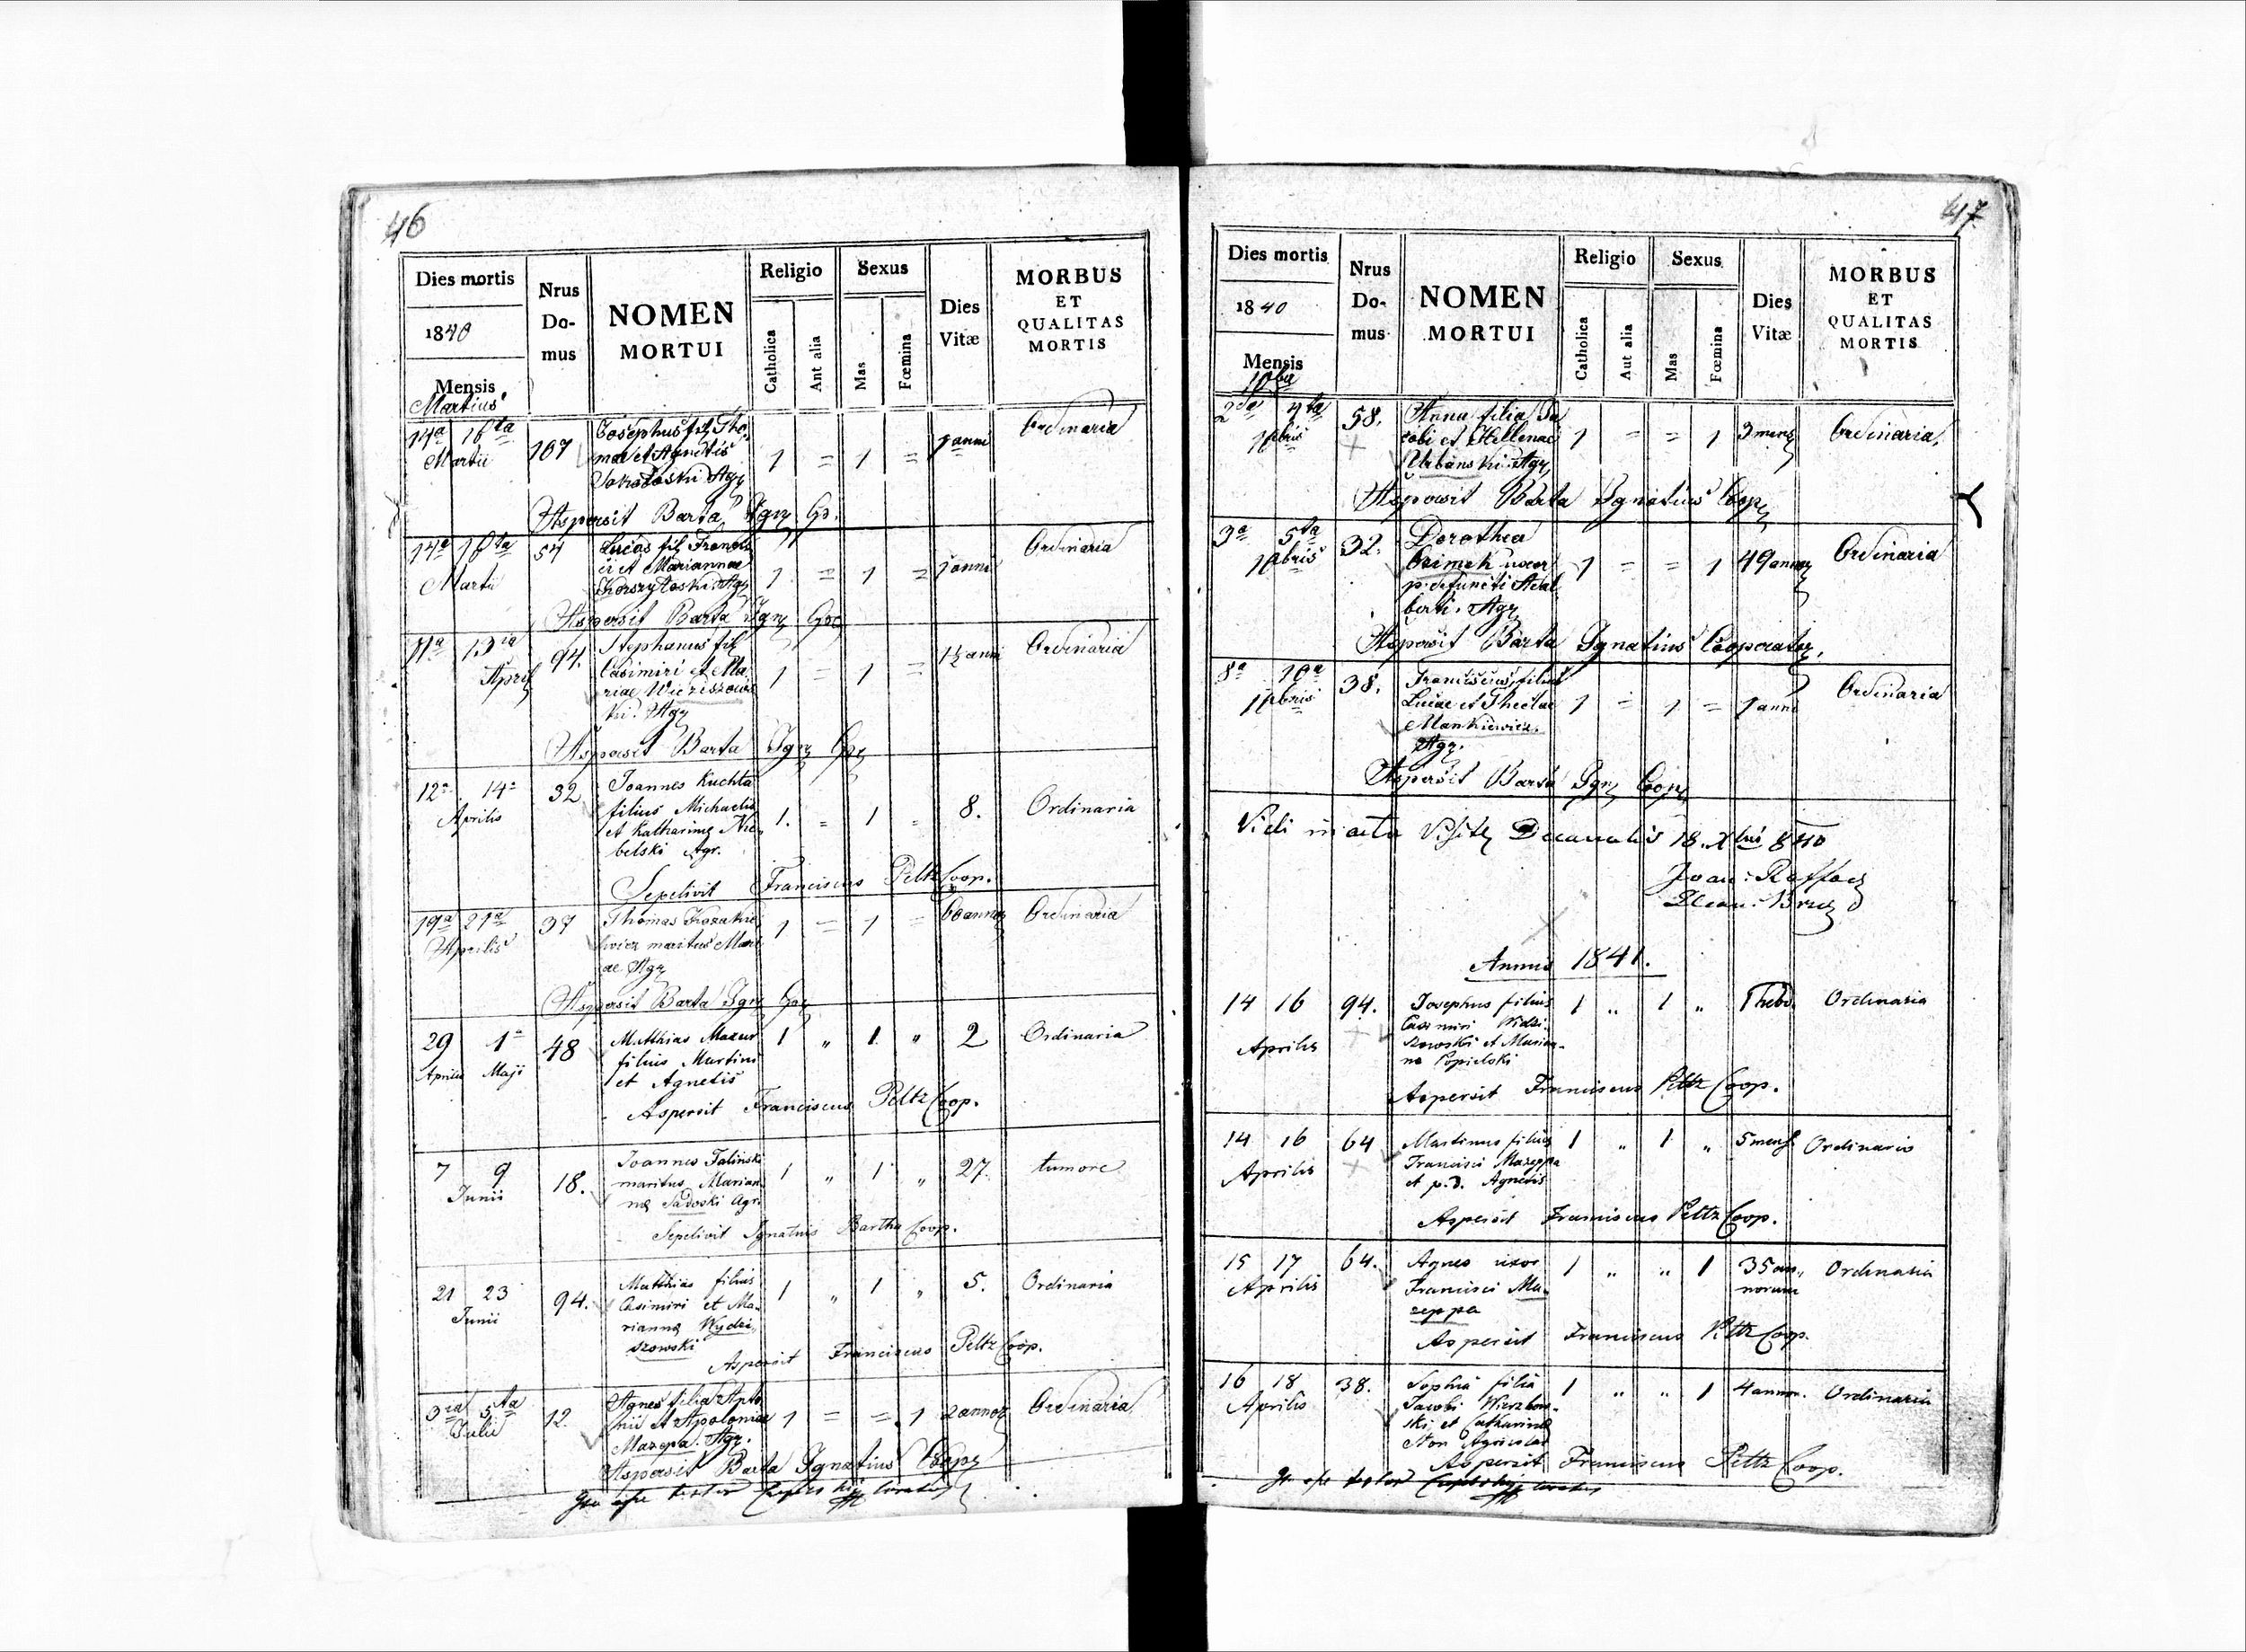 46
Dies mortis
1840
Mensis
Martius
Nrus
Do-
mus
NOMEN
MORTUI
Religio
Catholica
Ant alia
Sexus
Mas
Fœmina
Dies
Vitæ
MORBUS
ET
QUALITAS
MORTIS
14a 16ta
Martii
107
Josephus fil Tho-
mae et Agnetis
Agr
1 = 1 =
1 anni
Ordinaria
Aspersit Barta Ign
14a 16ta
Martii
54
Lucas fil Francis
ci et Mariannae
1 = 1 =
1 anni
Ordinaria
Aspersit Barta Ign
11a 13ia
April
94.
Stephanus fil
Casimiri et Ma
riae
ki. Agr
1 = 1 =
1½ anni
Ordinaria
Aspersit Barta Ign
12a 14a
Aprilis
32
Joannes Kuchta
filius Michaelis
et Katharinę Nie-
belski Agr.
1. = 1 =
8.
Ordinaria
Sepelivit Franciscus Peltz Coop.
19a 21a
Aprilis
37
Thomas
wicz maritus Mari
ae Agr
1 = 1 =
60 annor
Ordinaria
Aspersit Barta Ign
29 1a
Aprilis Maji
48
Matthias Mazur
filius Martini
et Agnetis
1 „ 1 „
2
Ordinaria
Aspersit Franciscus Peltz Coop.
7 9
Junii
18.
Joannes Talinski
maritus Marian-
nę Sadoski Agr.
1 „ 1 „
27.
tumore
Sepelivit Ignatius Bartha Coop.
21 23
Junii
94.
Matthias filius
Casimiri et Ma-
riannę Wydzi-
szowski
1 „ 1 „
5.
Ordinaria
Aspersit Franciscus Peltz Coop.
3ia 5ta
Julii
12.
Agnes filia Anto
nii et Apoloniae
Mazepa. Agr.
1 = = 1
2 annor
Ordinaria
Aspersit Barta Ignatius Coop
47
Dies mortis
1840
Mensis
10bris
Nrus
Do-
mus
NOMEN
MORTUI
Religio
Catholica
Aut alia
Sexus
Mas
Fœmina
Dies
Vitæ
MORBUS
ET
QUALITAS
MORTIS
2da 4ta
10bris
58.
Anna filia Ja
cobi et Hellenae
Urbanski Agr
1 = = 1
3 mens
Ordinaria,
Aspersit Barta Ignatius Coop
3a 5ta
10bris
32.
Dorothea
uxor
p. defuncti Adal
berti. Agr
1 = = 1
49 annor
Ordinaria
Aspersit Barta Ignatius Cooperator,
8a 10a
10bris
38.
Franciscus, filius
Lucae et Theclae
Mankiewicz.
Agr.
1 = 1 =
1 anni
Ordinaria
Aspersit Barta Ign Coop
Vidi Decanalis 18. Xbris 840
Annus 1841.
14 16
Aprilis
94.
Josephus filius
Casimiri Widzi-
szowski et Marian-
na Popielski
1 „ 1 „
1 hebd.
Ordinaria
Aspersit Franciscus Peltz Coop.
14 16
Aprilis
64
Martinus filius
Francisci Mazeppa
et p.d. Agnetis
1 „ 1 „
5 mens
Ordinaria
Aspersit Franciscus Peltz Coop.
15 17
Aprilis
64.
Agnes uxor
Francisci Ma-
zeppa
1 „ „ 1
35 an-
norum
Ordinaria
Aspersit Franciscus Peltz Coop.
16 18
Aprilis
38.
Sophia filia
Jacobi Wierzbow-
ski et Catharinę
Non Agricolae
1 „ „ 1
4 annor.
Ordinaria
Aspersit Franciscus Peltz Coop.